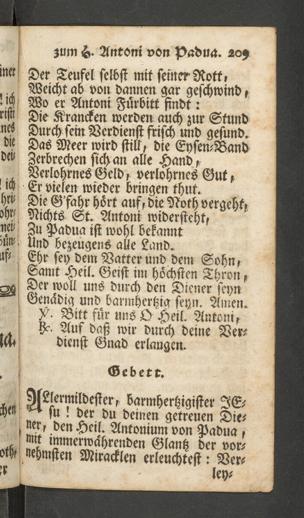 zum H. Antoni von Padua. 209
Der Teufel selbst mit seiner Rott,
Weicht ab von dannen gar geschwind,
Wo er Antoni Fürbitt findt:
Die Krancken werden auch zur Stund
Durch sein Verdienst frisch und gesund.
Das Meer wird still, die Eysen-Band
Zerbrechen sich an alle Hand,
Verlohrnes Geld, verlohrnes Gut,
Er vielen wieder bringen thut.
Die G'fahr hört auf, die Noth vergeht,
Nichts St. Antoni widersteht,
Zu Padua ist wohl bekannt
Und bezeugens alle Land.
Ehr sey dem Vatter und dem Sohn,
Samt Heil. Geist im höchsten Thron,
Der woll uns durch den Diener seyn
Genädig und barmhertzig seyn. Amen.
℣. Bitt für uns O Heil. Antoni,
℟. Auf daß wir durch deine Ver-
dienst Gnad erlangen.
Gebett.
ALlermildester, barmhertzigister JE-
su! der du deinen getreuen Die-
ner, den Heil. Antonium von Padua,
mit immerwährenden Glantz der vor-
nehmsten Miracklen erleuchtest: Ver-
ley-